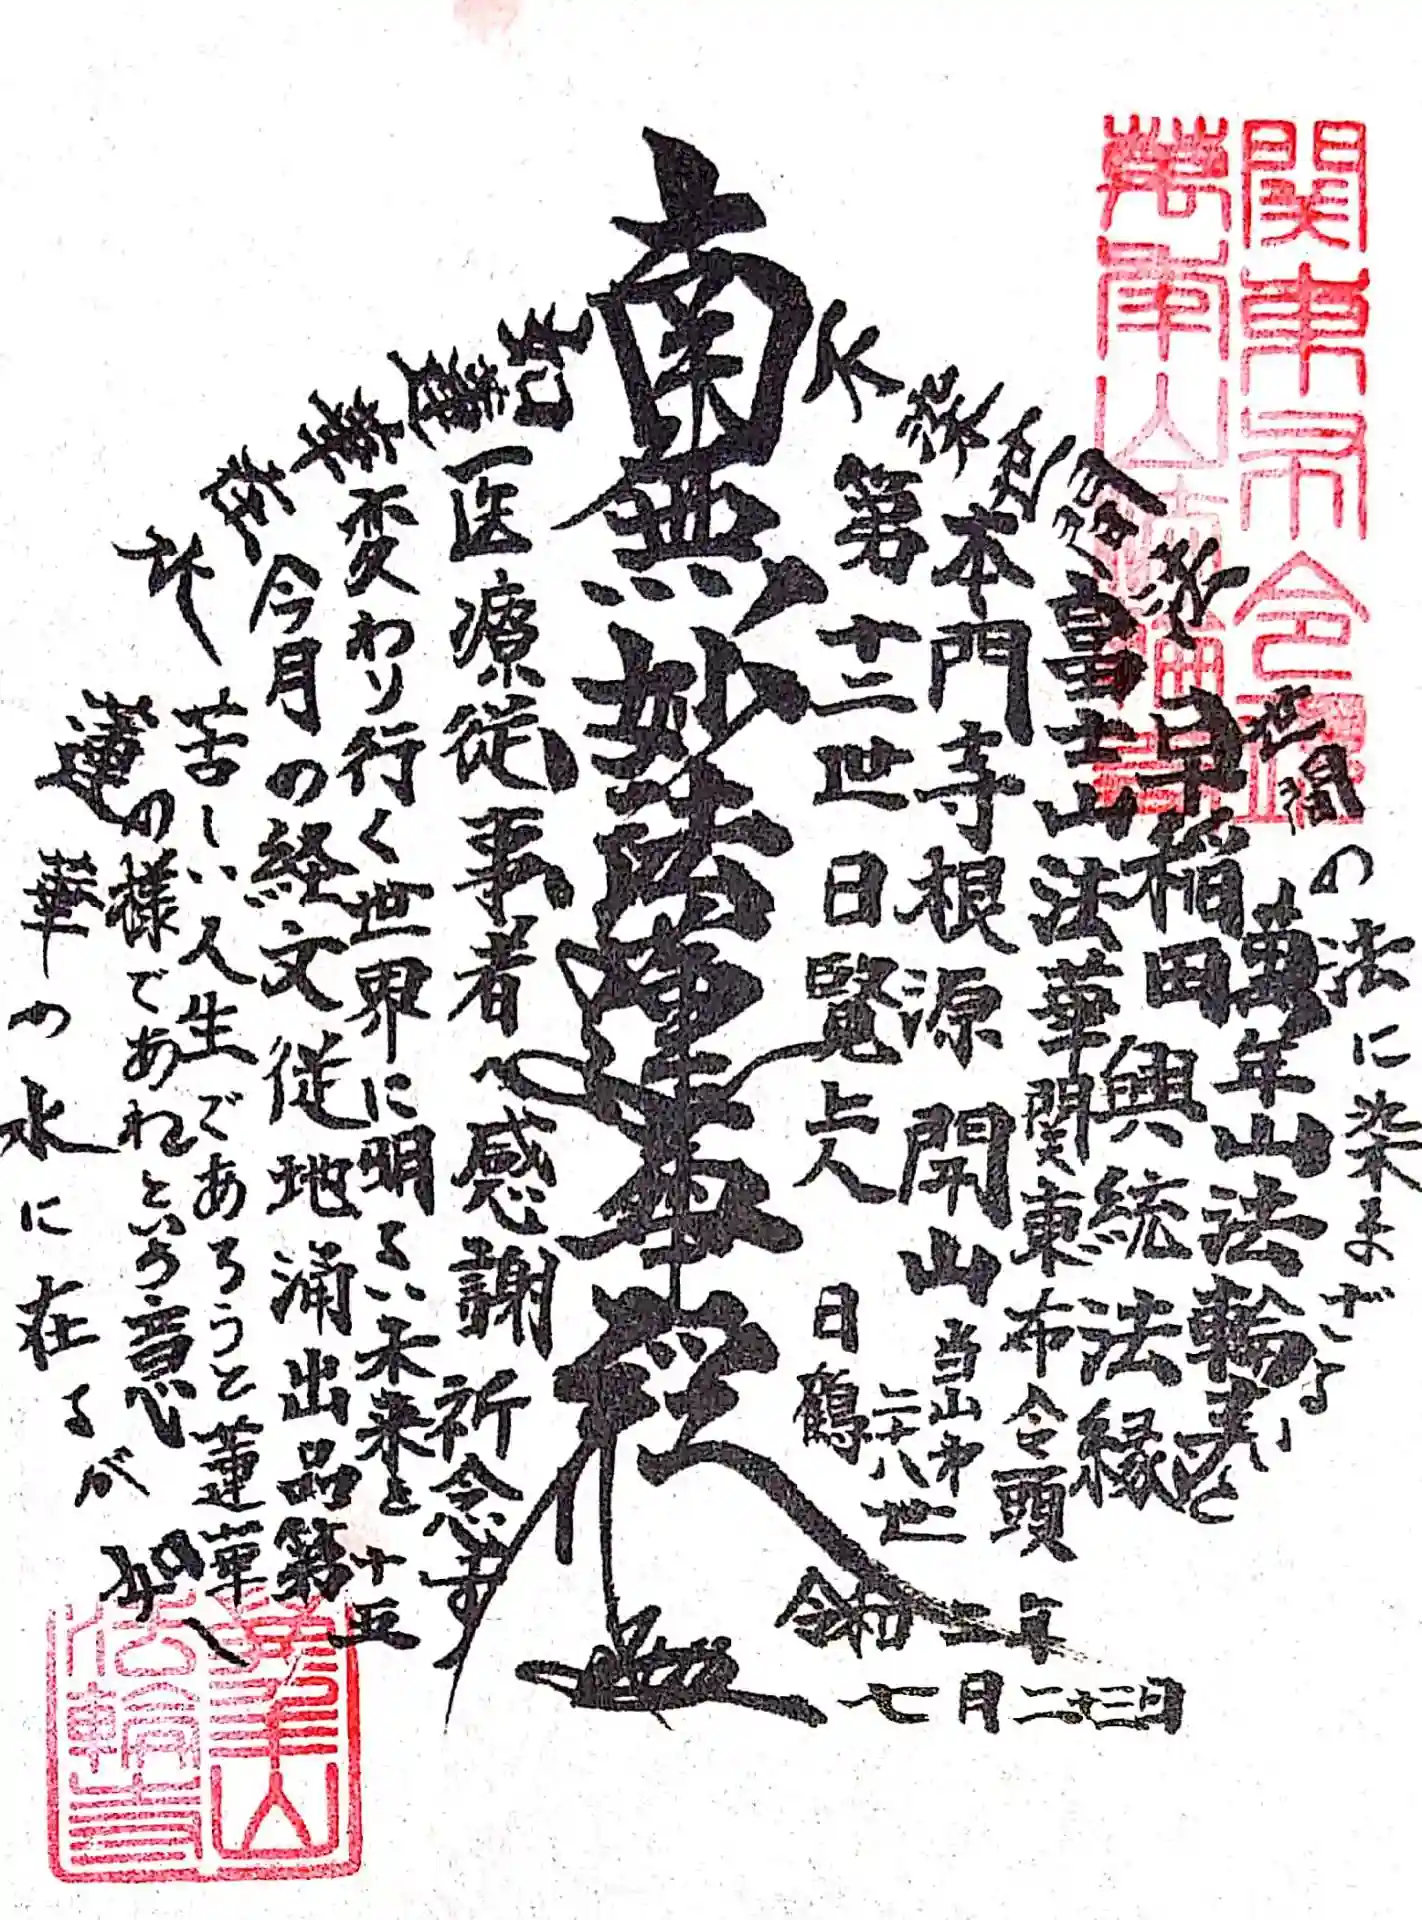 関東布令頭
萬年山法輪寺
不染世間法
如蓮華在水
世間の法に染まざること
萬年山法輪寺
早稲田興統法縁
富士山法華関東布令頭
本門寺根源 開山
第十二世 日賢上人
当山第二十八世
日鶴
南無妙法蓮華経
医療従事者へ感謝 祈念す
変わり行く世界に明るい未来を
今月の経文従地涌出品第十五
苦しい人生であろうと蓮華
の様であれという意
蓮華の水に在るが如く
令和二年
七月二十三日
萬年山
法輪寺